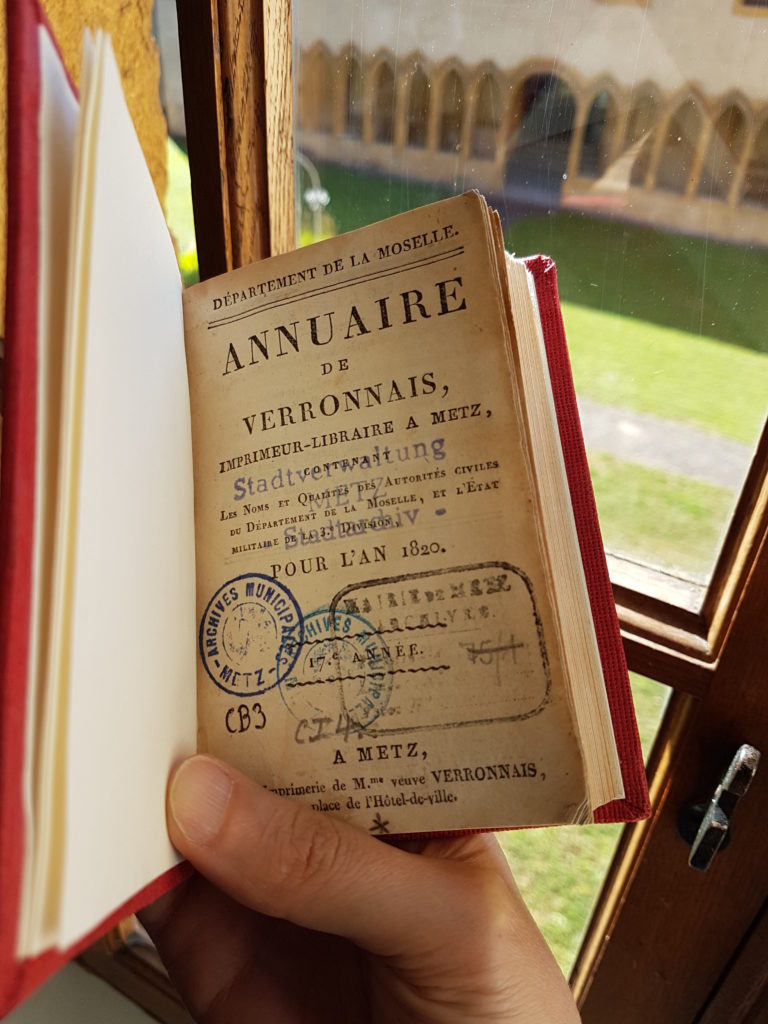 DÉPARTEMENT DE LA MOSELLE.
ANNUAIRE
DE
VERRONNAIS,
IMPRIMEUR-LIBRAIRE A METZ,
CONTENANT
Stadtverwaltung
LES NOMS ET QUALITÉS DES AUTORITÉS CIVILES
METZ
DU DÉPARTEMENT DE LA MOSELLE, ET L'ÉTAT
Stadtarchiv -
MILITAIRE DE LA 3.e DIVISION,
POUR L'AN 1820.
ARCHIVES MUNICIPALES
- METZ -
ARCHIVES MUNICIPALES
MAIRIE DE METZ
ARCHIVES
17.e ANNÉE.
15/1
CB3
CI4
A METZ,
Imprimerie de M.me veuve VERRONNAIS,
place de l'Hôtel-de-ville.
*